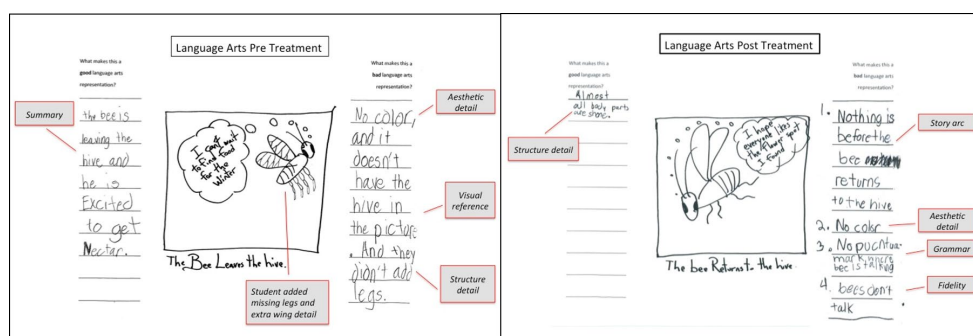 Language Arts Pre Treatment
What makes this a
good language arts
representation?
Summary
the bee is
leaving the
hive and
he is
Excited
to get
Nectar.
I can't wait
to find food
for the
winter
The Bee Leavs the hive.
Student added
missing legs and
extra wing detail
What makes this a
bad language arts
representation?
No color,
and it
doesn't
have the
hive in
the picture
. And they
didn't add
legs.
Aesthetic
detail
Visual
reference
Structure
detail
Language Arts Post Treatment
What makes this a
good language arts
representation?
Almost
all body parts
are shone.
Structure detail
I hope
everyone likes
the flower spot
I found
The bee Returns to the hive.
What makes this a
bad language arts
representation?
1. Nothing is
before the
bee
returns
to the hive
2. No color
3. No puchtua-
mark, where
bee is talking
4. bees don't
talk
Story arc
Aesthetic
detail
Grammar
Fidelity